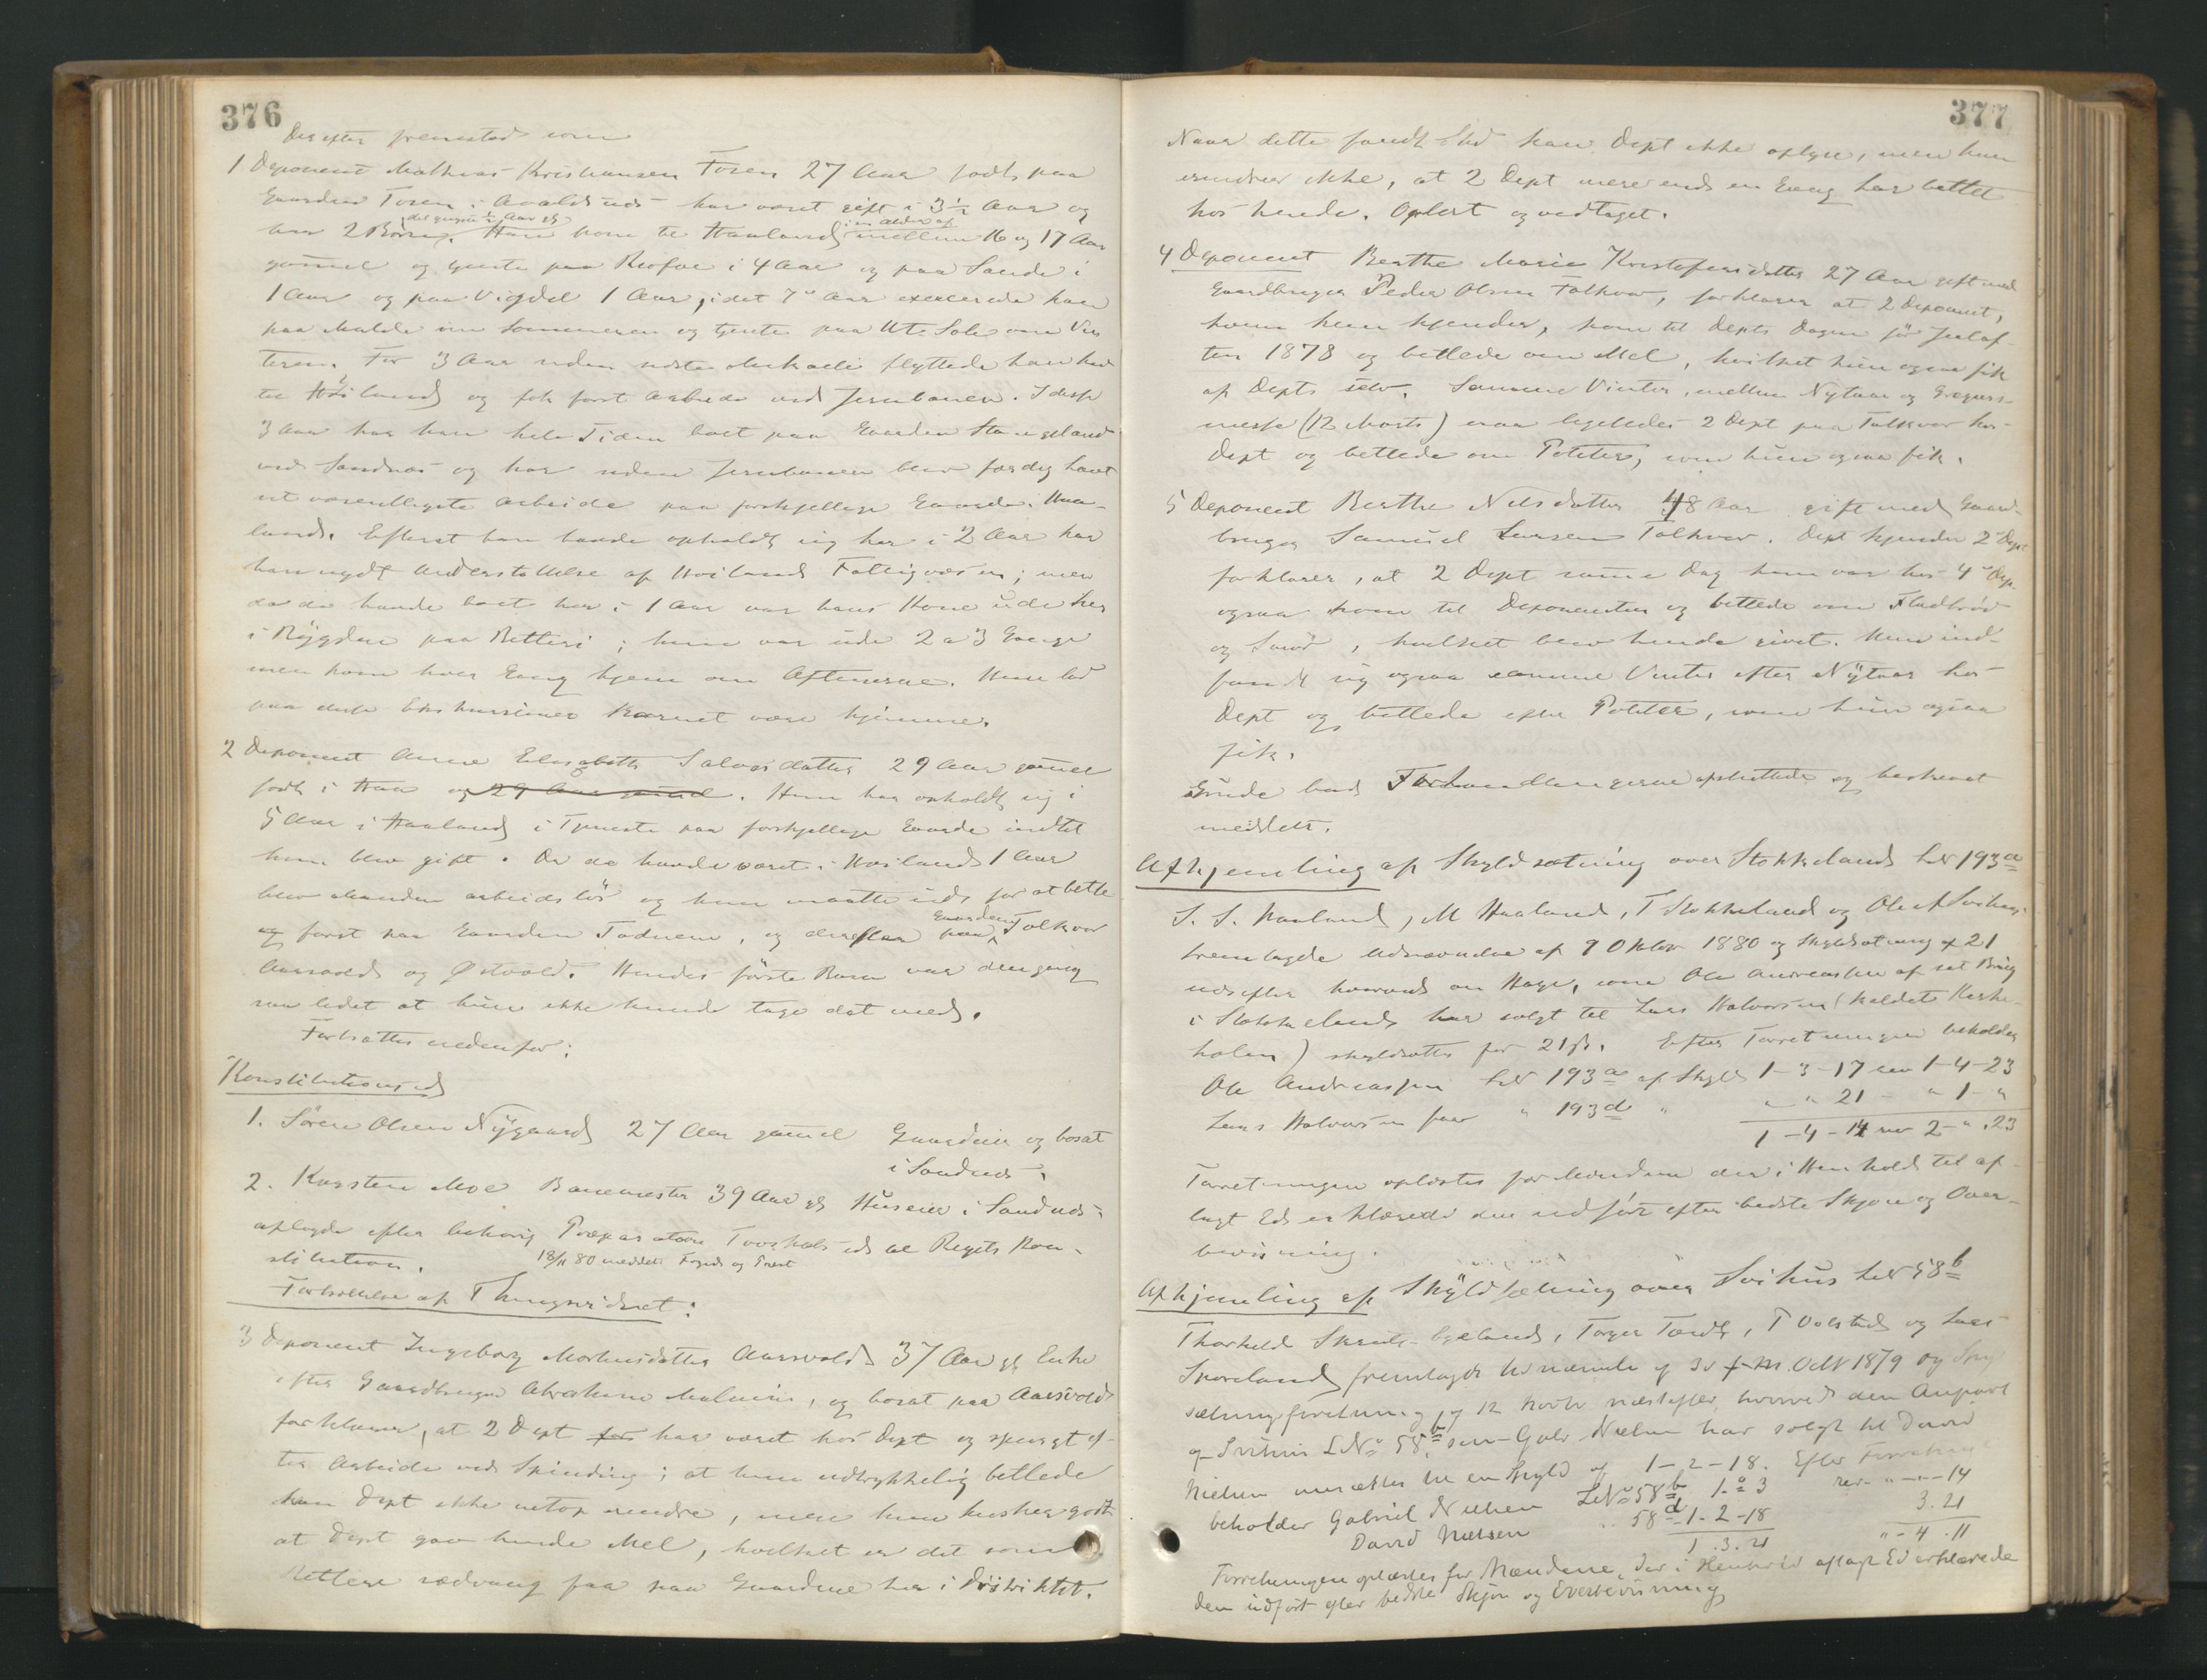 376
Derefter fremstod som
1 Deponent Mathias Kristiansen Tosen 27 Aar født paa
Gaarden Tosen i Avaldsnes har været gift i 3½ Aar og
har 2 Børn, det yngste ½ Aar gl. Han kom til Haaland i en Alder af mellem 16 og 17 Aar
gammel og tjente paa Reofoe i 4 Aar og paa Sande i
1 Aar og paa Vigdel 1 Aar, i det 7de Aar exercerede han
paa Malde om Sommeren og tjente paa Ut-Sole om Vin
teren. For 3 Aar siden sidste Mikaeli flyttede han her
til Høiland og fik først Arbeide ved Jernbanen. I disse
3 Aar har han hele Tiden boet paa Gaarden Stangeland
ved Sandnæs og har siden Jernbanen blev færdig havt
sit væsentligste Arbeide paa forskjellige Gaarde i Haa-
land. Efterat han havde opholdt sig her i 2 Aar har
han nydt Understøttelse af Høilands Fattigvæsen; men
da de havde boet her i 1 Aar var hans Kone ude her
i Bygden paa Betleri; hun var ude 2 a 3 Gange
men kom hver Gang hjem om Aftenerne. Hun lod
paa disse Exkursioner Barnet være hjemme.
2 Deponent Anne Elisabeth Salvesdatter 29 Aar gammel
født i Haa og 29 Aar gammel. Hun har opholdt sig i
5 Aar i Haaland i Tjeneste paa forskjellige Gaarde indtil
hun blev gift. Da de havde været i Høiland 1 Aar
blev Manden arbeidsløs og hun maatte ud for at betle
og først paa Gaarden Foduem, og derefter paa Gaarden Folkvor
Aarsvold og Østvold. Hendes første Barn var dengang
saa lidet at hun ikke kunde tage det med.
Fortsættes nedenfor:
Konstitutionsed
1. Søren Olsen Nygaard 27 Aar gammel Gaardeier og bosat
i Sandnæs.
2. Karsten Moe Banemester 39 Aar gl Huseier i Sandnæs
aflagde efter behørig Præparation Troskabsed til Rigets Kon-
stitution. 18/11 80 meddelt Foged og Prest
Fortsættelse af Thingsvidnet:
3 Deponent Ingeborg Mortensdatter Aarsvold 37 Aar gl Enke
efter Gaardbruger Abraham Malmin, og bosat paa Aarsvold
forklarer, at 2 Dept har været hos Dept og spurgt ef-
ter Arbeide ved Spinding; at hun udtrykkelig betlede
kan Dept ikke netop erindre, men hun husker godt
at Dept gav hende Mel, hvilket er det som
Betlere sædvanlig faa paa Gaardene her i Distriktet.
377
Naar dette fandt Sted kan Dept ikke oplyse, men hun
erindrer ikke, at 2 Dept mere end en Gang har betlet
hos hende. Oplæst og vedtaget.
4 Deponent Berthe Marie Kristofersdatter 27 Aar gift med
Gaardbruger Peder Olsen Folkvor, forklarer at 2 Deponent,
hvem hun kjender, kom til Depts Dagen før Juleaf-
ten 1878 og betlede om Mel, hvilket hun ogsaa fik
af Dept selv. Samme Vinter, mellem Nytaar og Gregors-
messe (12 Marts) var ligeledes 2 Dept paa Folkvor hos
Dept og betlede om Poteter, som hun ogsaa fik.
5 Deponent Berthe Nilsdatter 48 Aar gift med Gaard-
bruger Samuel Larsen Folkvor. Dept kjender 2 Dept
forklarer, at 2 Dept samme Dag hun var hos 4de Dep.
ogsaa kom til Deponenten og betlede om Fladbrød
og Smør, hvilket blev hende givet. Hun ind-
fandt sig ogsaa samme Vinter efter Nytaar hos
Dept og betlede efter Poteter, som hun ogsaa
fik.
Forhandlingerne afsluttede og beskrevet
meddelt.
Afhjemling af Skyldsætning over Stokkeland LNo 193a
S. S. Haaland, M Haaland, T Stokkeland og Ole A Svihus
fremlagde Udnævnelse af 9 Oktbr 1880 og Skyldsætning af 21
næstefter hvorved en Hage, som Ole Andreassen af sit Brug
i Stokkeland har solgt til Lars Halvorsen (kaldet Kirke-
holen) skyldsattes for 21 ß. Efter Forretningen beholder
Ole Andreassen LNo 193a af Skyld 1-3-17 rev 1-4-23
Lars Halvorsen faar " 193d " " " 21 - " 1 - "
1-4-14 rev 2-".23
Forretningen oplæstes for Mændene der i Henhold til af
lagt Ed erklærede den udført efter bedste Skjøn og Over-
bevisning.
Afhjemling af Skyldsætning over Svihus LNo 58b
Thorkeld Skeie-Igeland, Torger Tords, T Volstad og Lars
Skoreland fremlagde Udnævnelse af 30 f. M. Oktbr 1879 og Skyld
sætningsforretning af 12 Novbr næstefter, hvorved den Anpart
af Svihus LNo 58b som Gabr Nielsen har solgt til David
Nielsen ansættes til en Skyld af 1-2-18. Efter Forretning
beholder Gabriel Nielsen LNo 58b 1.o.3 rev - " - " - 14
David Nielsen .. 58d 1-2-18 3.21
1.3.21 " - 4.11
Forretningen oplæstes for Mændene, der i Henhold aflagt Ed erklærede
den udført efter bedste Skjøn og Overbevisning